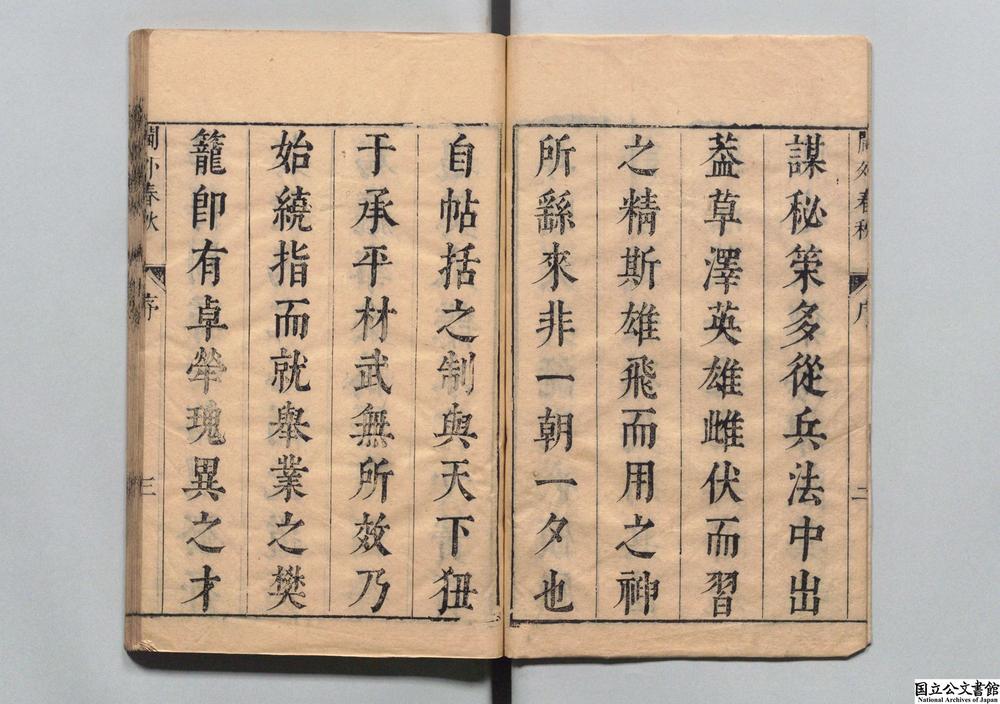 閫外春秋 序 二
謀秘策多從兵法中出
葢草澤英雄雌伏而習
之精斯雄飛而用之神
所繇來非一朝一夕也
自帖括之制與天下狃
于承平材武無所效乃
始繞指而就舉業之樊
籠即有卓犖瑰異之才
閫外春秋 序 三
国立公文書館
National Archives of Japan